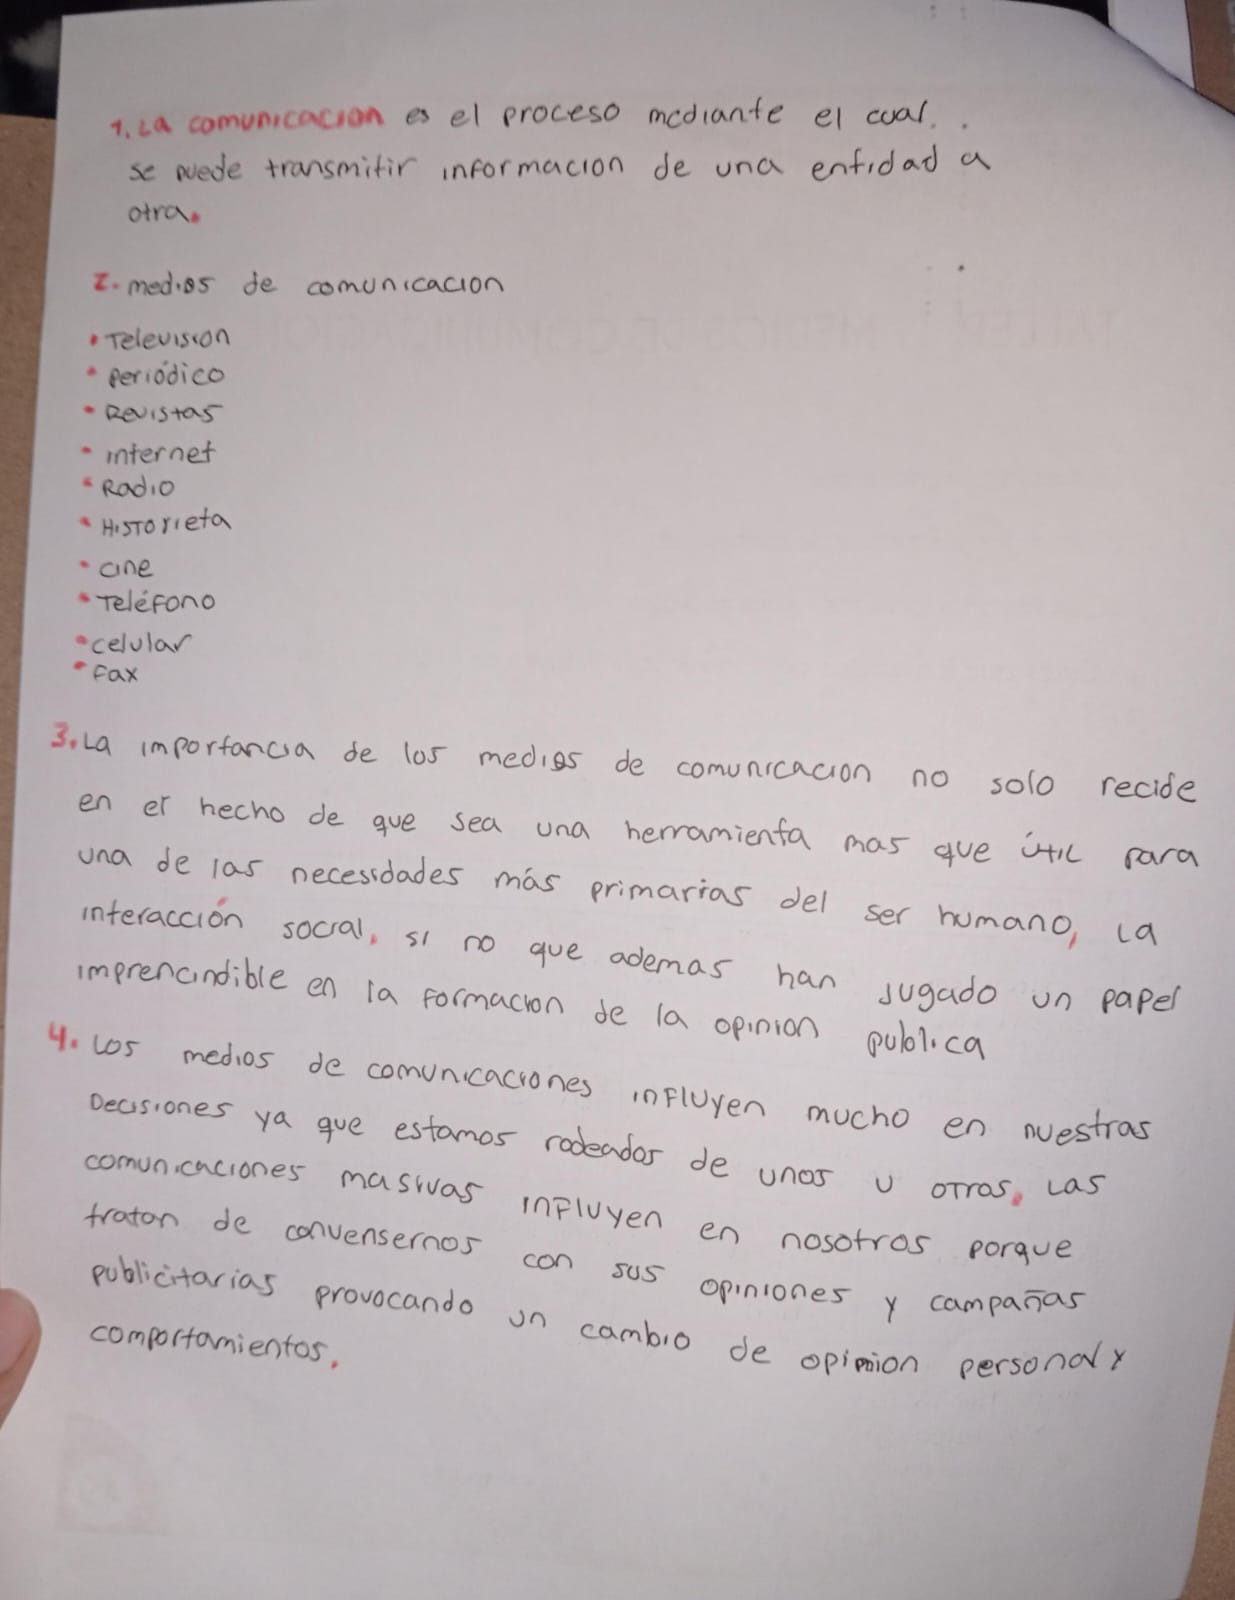 1. La comunicacion es el proceso mediante el cual.
se puede transmitir informacion de una entidad a
otra.
2. medios de comunicacion
• Television
• periódico
• Revistas
• internet
• Radio
• Historieta
• cine
• Teléfono
• celular
• Fax
3. La importancia de los medios de comunicacion no solo recide
en el hecho de que sea una herramienta mas que útil para
una de las necesidades más primarias del ser humano, la
interacción social, si no que ademas han jugado un papel
imprencindible en la formacion de la opinion publica
4. Los medios de comunicaciones influyen mucho en nuestras
Decisiones ya que estamos rodeados de unos u otros, Las
comunicaciones masivas influyen en nosotros porque
tratan de convensernos con sus opiniones y campañas
publicitarias provocando un cambio de opinion personal y
comportamientos.